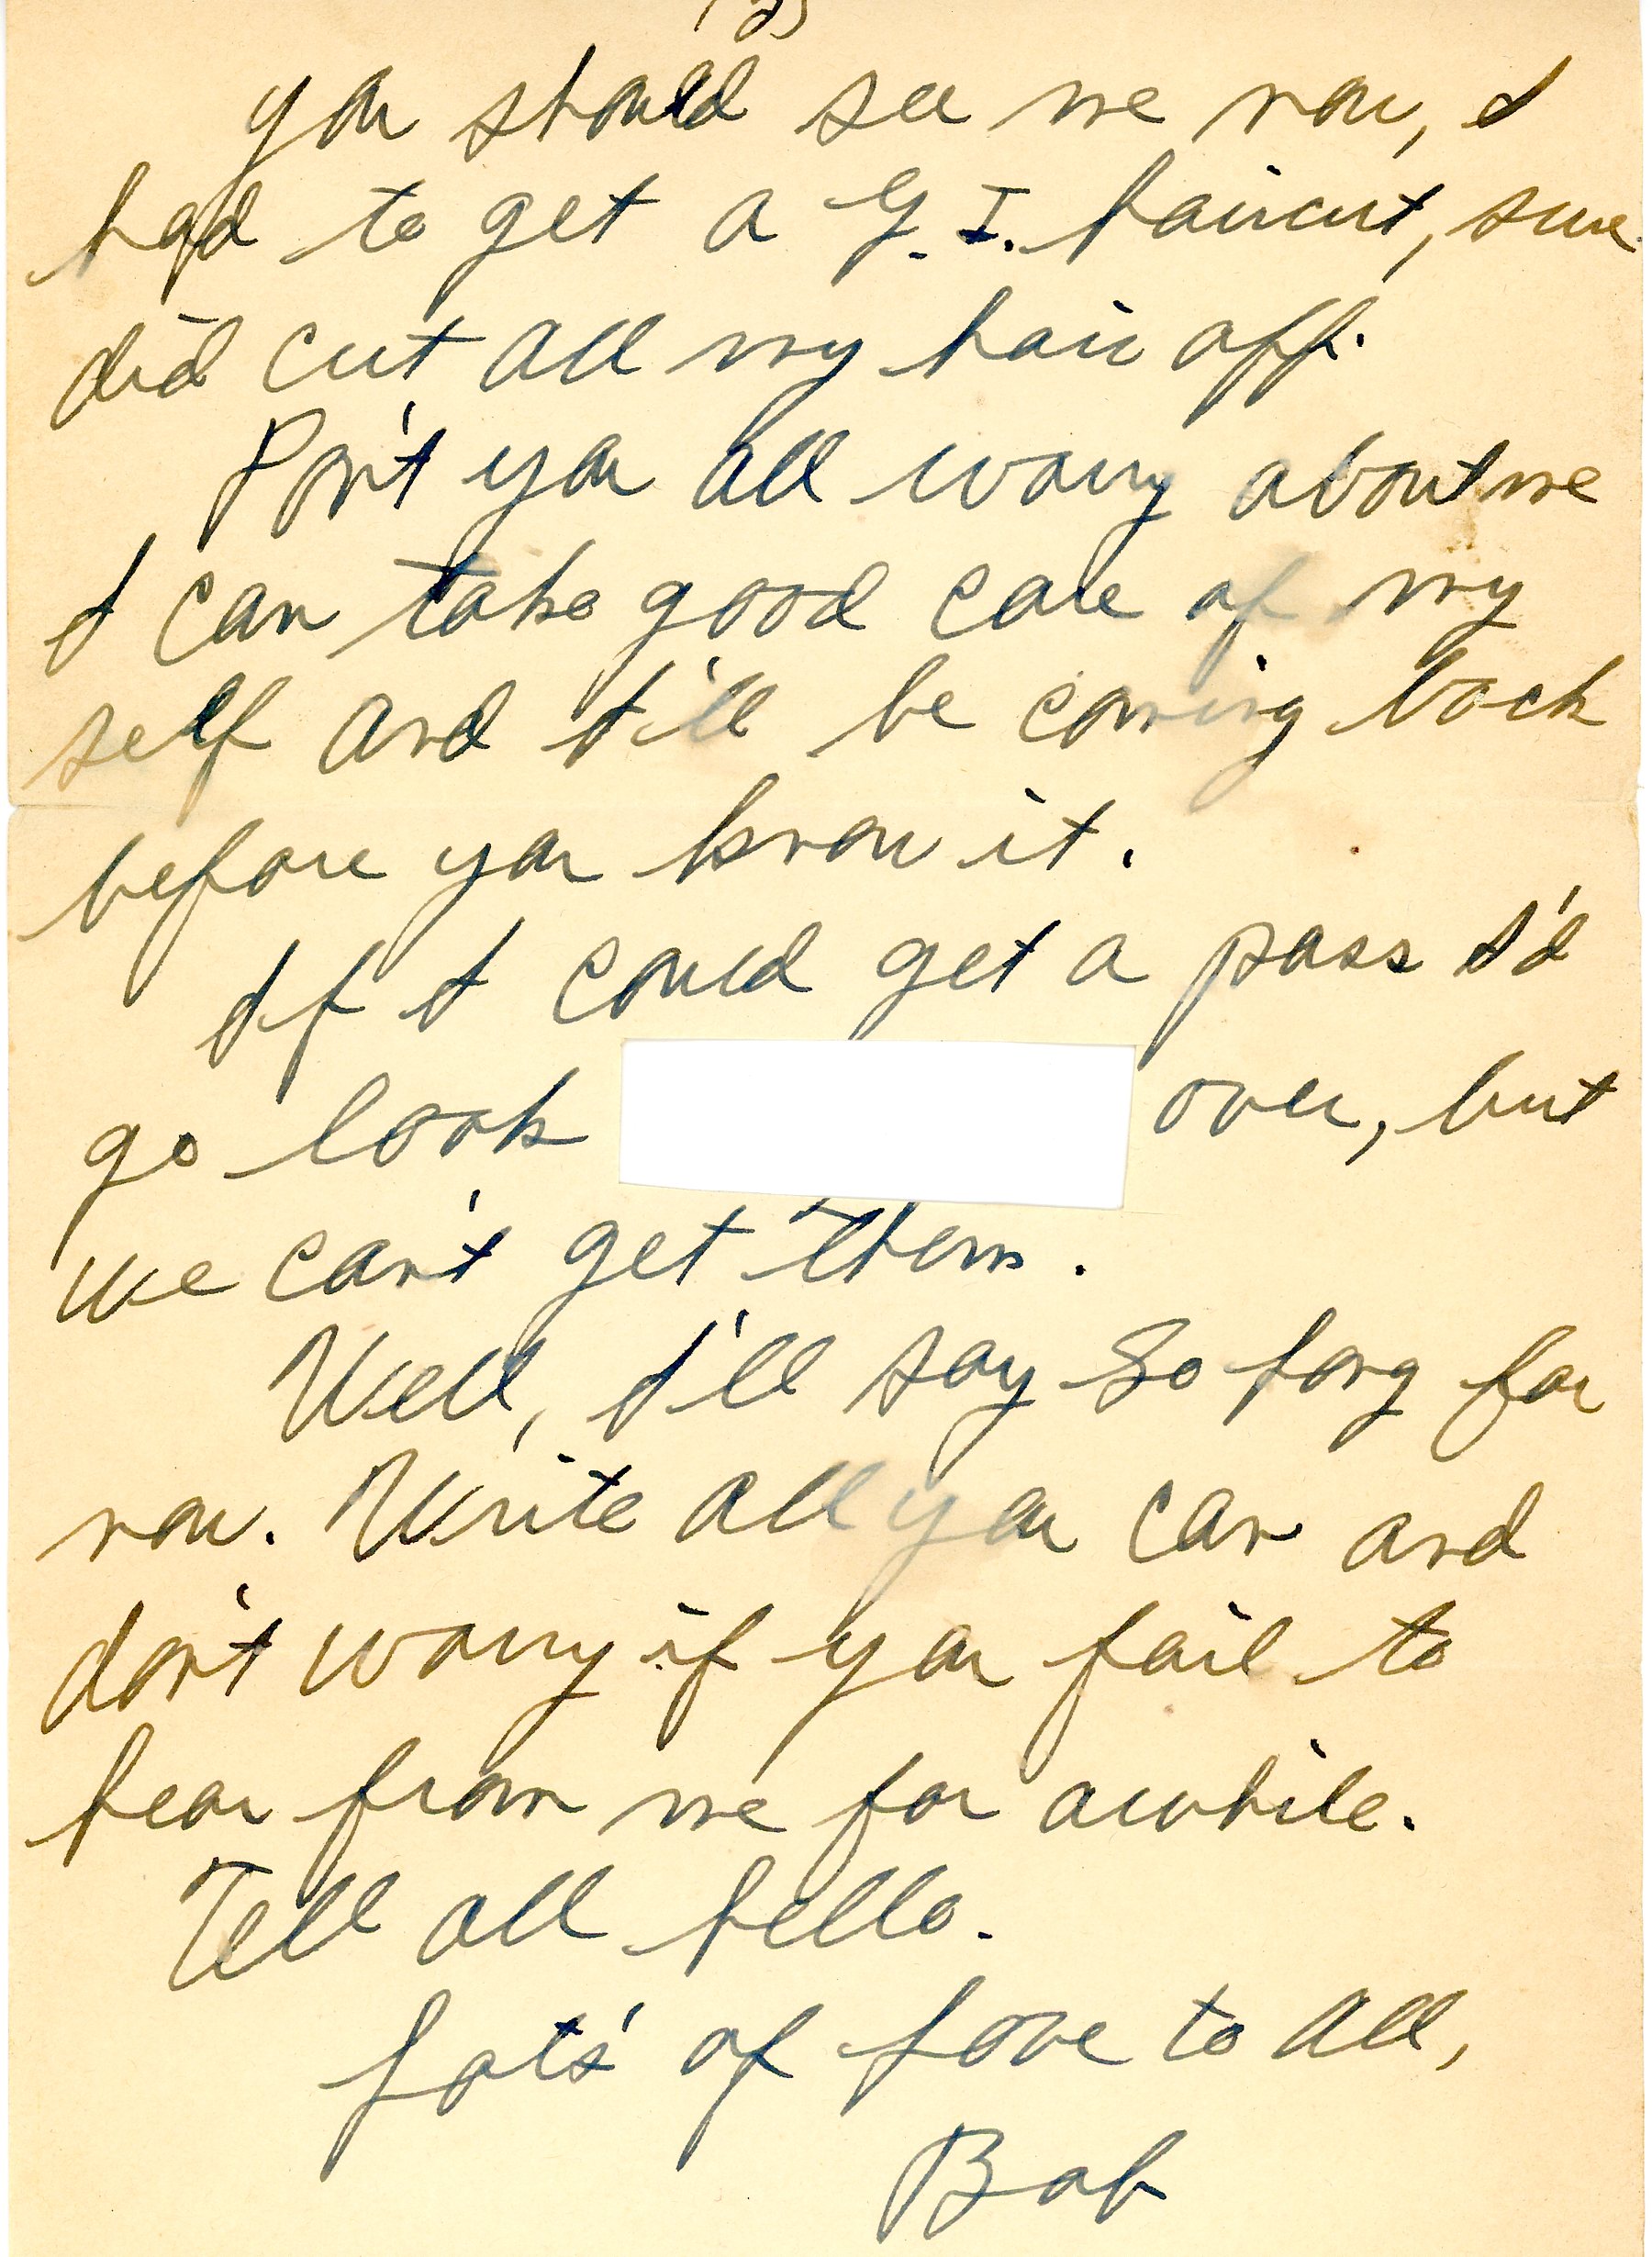 you should see me now, I
had to get a G.I. haircut, sure
did cut all my hair off.
Don't you all worry about me
I can take good care of my
self and I'll be coming back
before you know it.
If I could get a pass I'd
go look over, but
we can't get them.
Well, I'll say So Long for
now. Write all you can and
don't worry if you fail to
hear from me for awhile.
Tell all hello.
Lots' of Love to all,
Bob